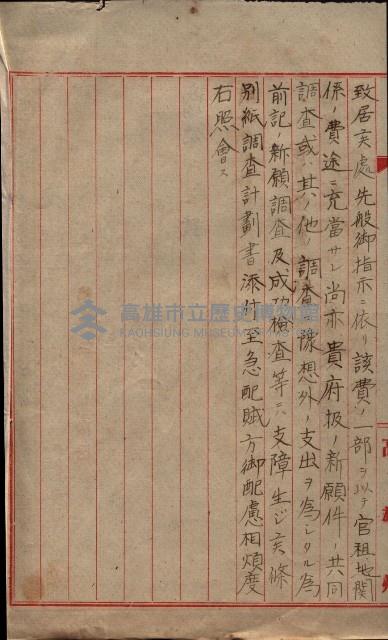 致居候處先般御指示ニ依リ該費ノ一部ヲ以テ官租地関
係ノ費途ニ充當サレ尚亦貴府扱ノ新願件ノ共同
調査或ハ其ノ他ノ調査豫想外ノ支出ヲ為シタル為
前記ノ新願調査及成功檢査等ニ支障生ジ候條
別紙調査計劃書添付至急配賦方御配慮相煩度
右照會ス
高雄州
高雄市立歷史博物館
KAOHSIUNG MUSEUM